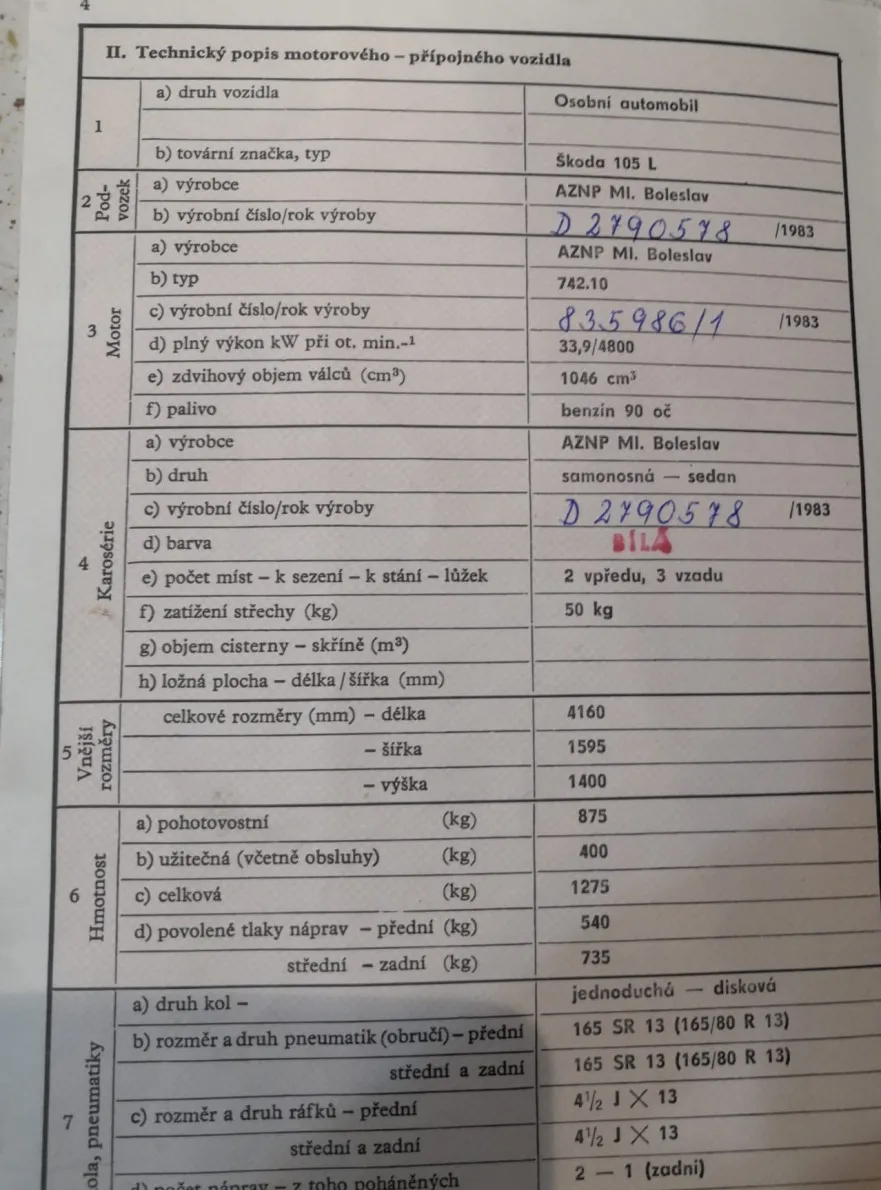 4
II. Technický popis motorového – přípojného vozidla
1
a) druh vozidla Osobní automobil
b) tovární značka, typ Škoda 105 L
2 Pod-vozek
a) výrobce AZNP Ml. Boleslav
b) výrobní číslo/rok výroby D 2790578 /1983
3 Motor
a) výrobce AZNP Ml. Boleslav
b) typ 742.10
c) výrobní číslo/rok výroby 835986/1 /1983
d) plný výkon kW při ot. min.-¹ 33,9/4800
e) zdvihový objem válců (cm³) 1046 cm³
f) palivo benzín 90 oč
4 Karosérie
a) výrobce AZNP Ml. Boleslav
b) druh samonosná — sedan
c) výrobní číslo/rok výroby D 2790578 /1983
d) barva BÍLÁ
e) počet míst – k sezení – k stání – lůžek 2 vpředu, 3 vzadu
f) zatížení střechy (kg) 50 kg
g) objem cisterny – skříně (m³)
h) ložná plocha – délka / šířka (mm)
5 Vnější rozměry
celkové rozměry (mm) – délka 4160
– šířka 1595
– výška 1400
6 Hmotnost
a) pohotovostní (kg) 875
b) užitečná (včetně obsluhy) (kg) 400
c) celková (kg) 1275
d) povolené tlaky náprav – přední (kg) 540
střední – zadní (kg) 735
7 ola, pneumatiky
a) druh kol – jednoduchá — disková
b) rozměr a druh pneumatik (obručí) – přední 165 SR 13 (165/80 R 13)
střední a zadní 165 SR 13 (165/80 R 13)
c) rozměr a druh ráfků – přední 4½ J X 13
střední a zadní 4½ J X 13
d) počet náprav – z toho poháněných 2 — 1 (zadní)